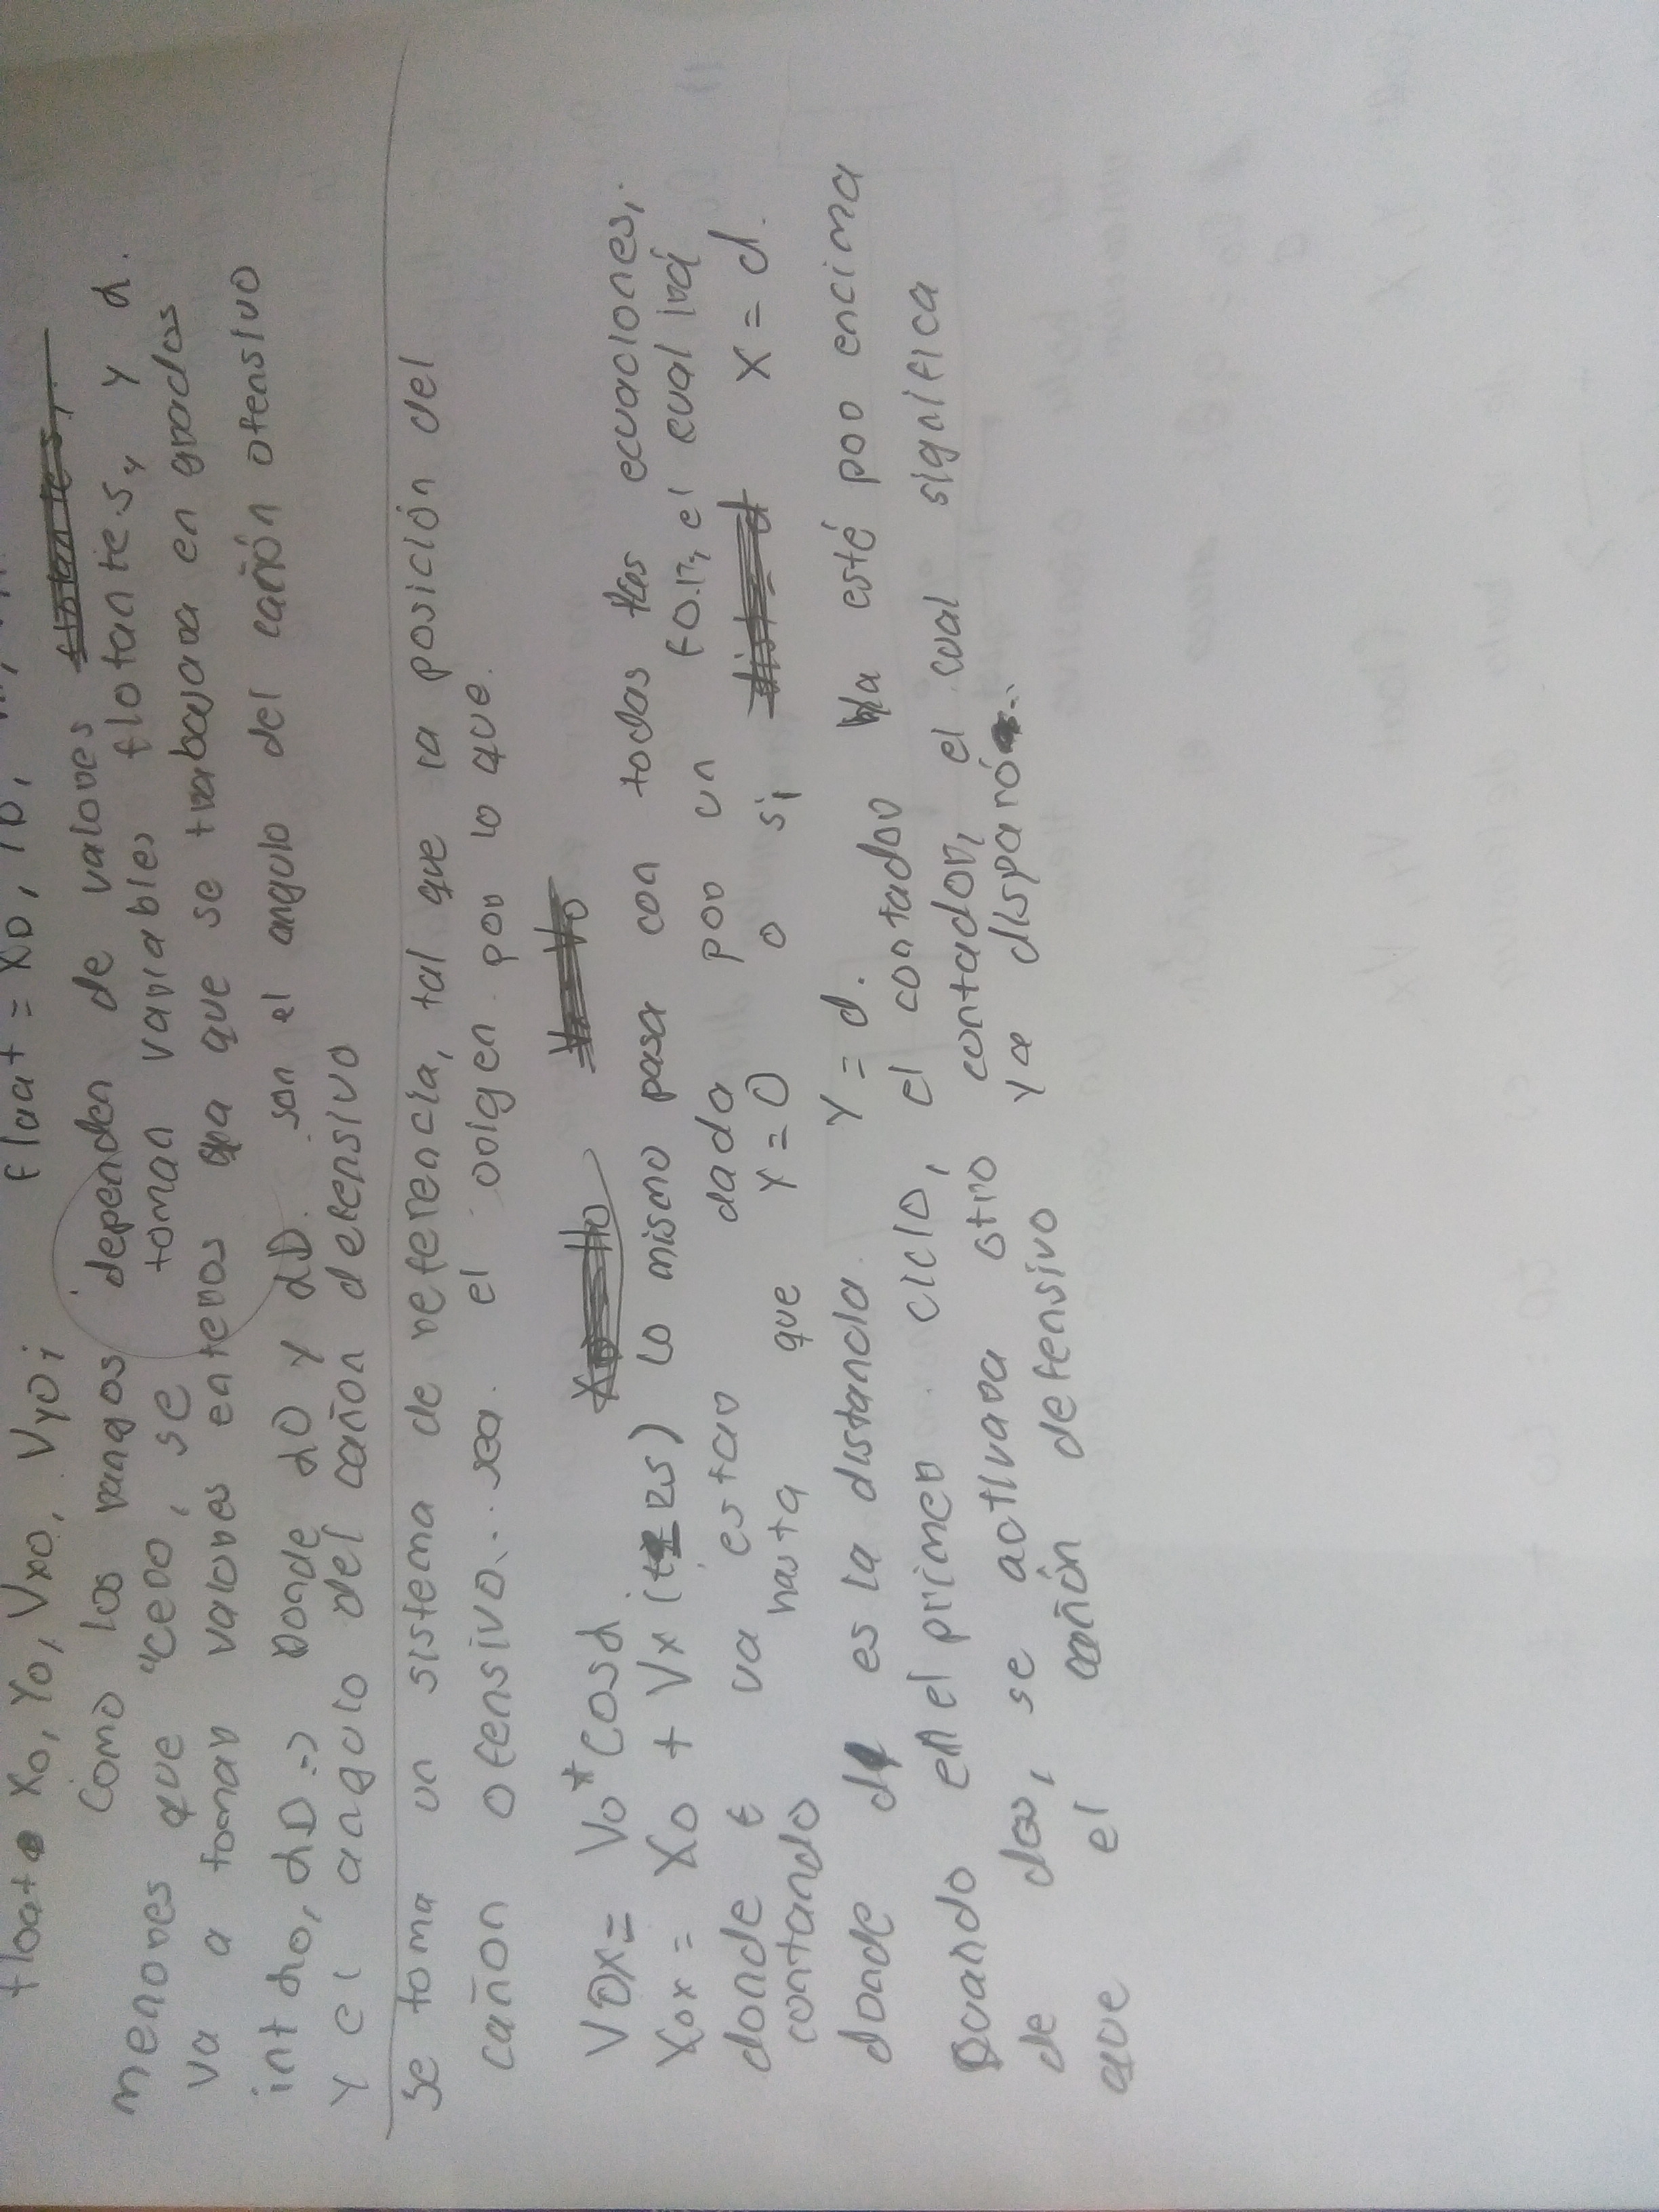 float x0, y0, Vx0, Vy0; float = XD, YD,
Como los rangos dependen de valores
menores que "cero, se toman variables flotantes, y d.
va a tomar valores enteros ya que se trabajara en grados
int d0, dD => Donde d0 y dD son el angulo del cañón ofensivo
y el angulo del cañon defensivo
Se toma un sistema de referencia, tal que la posición del
cañon ofensivo... sea el origen por lo que.
V0x = V0*Cosd
X0x = X0 + Vx (t) Lo mismo pasa con todas las ecuaciones,
donde t va estar dada por un for, el cual irá
contando hasta que y=0 o si x = d.
donde d es la distancia y = d.
Cuando en el primer ciclo, el contador ya esté por encima
de dos, se activara otro contador, el cual significa
que el cañón defensivo ya disparó..